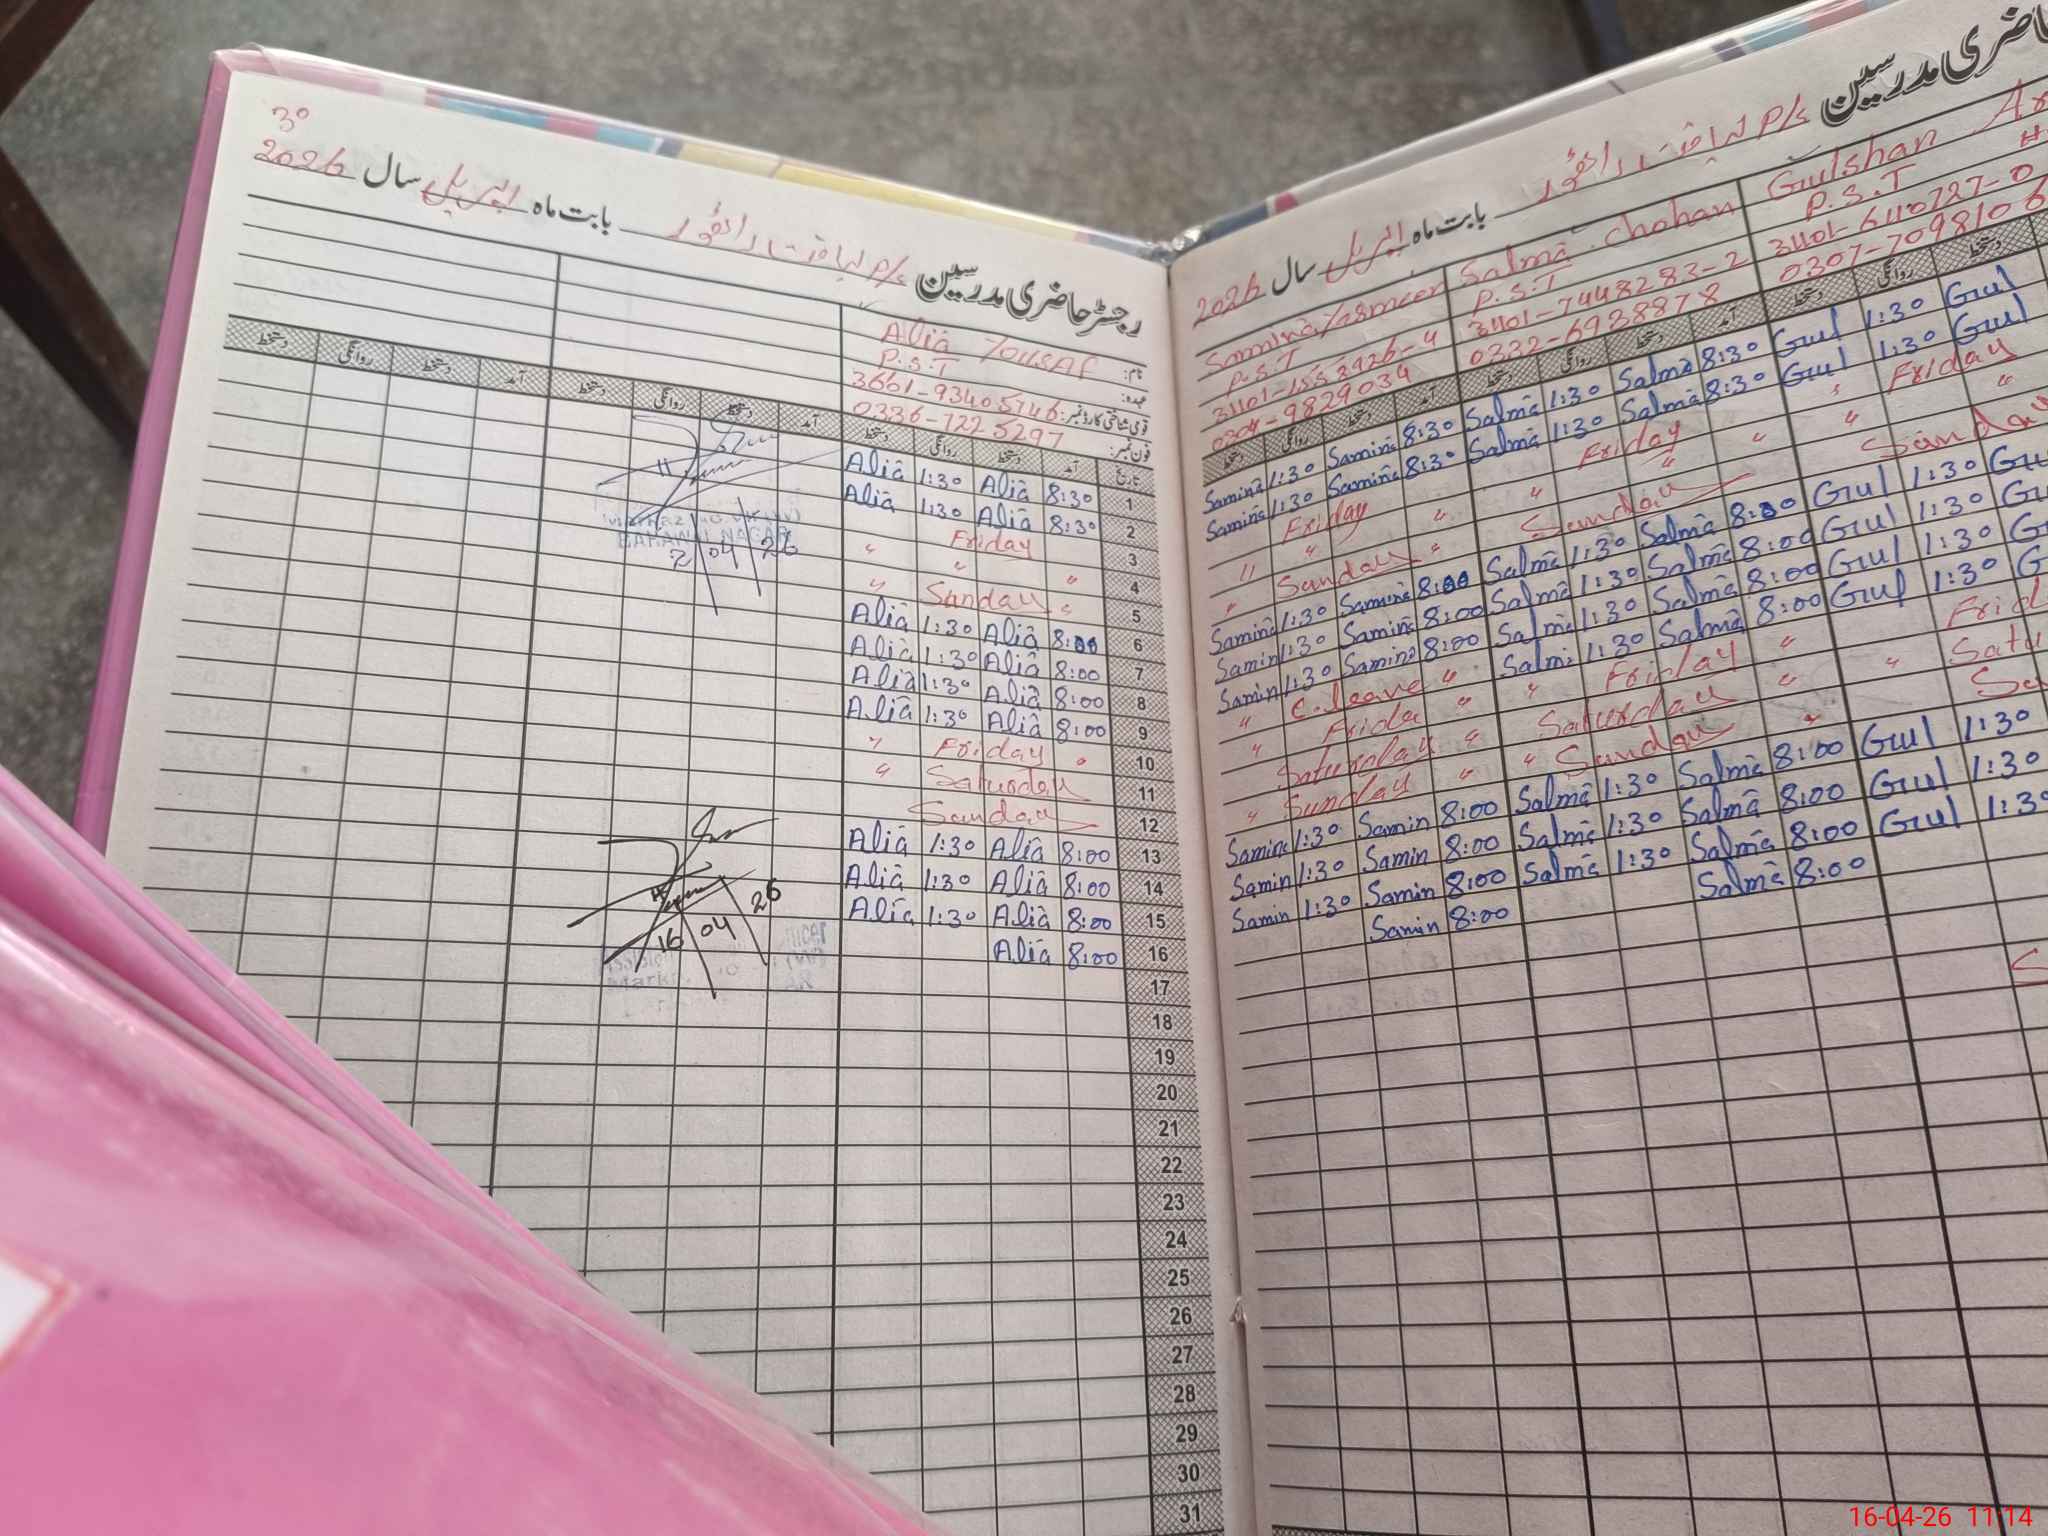 30
رجسٹر حاضری مدرسین p/s بابت ماہ اپریل سال 2026
نام: Alia Yousaf
عہدہ: P.S.T
قومی شناختی کارڈ نمبر: 3661-93405746
فون نمبر: 0336-7225297
تاریخ آمد دستخط روانگی دستخط آمد دستخط روانگی دستخط آمد دستخط روانگی دستخط
1 8:30 Alia 1:30 Alia
2 8:30 Alia 1:30 Alia
3 " Friday
4 " " "
5 " Sunday "
6 8:00 Alia 1:30 Alia
7 8:00 Alia 1:30 Alia
8 8:00 Alia 1:30 Alia
9 8:00 Alia 1:30 Alia
10 " Friday "
11 " Saturday
12 Sunday
13 8:00 Alia 1:30 Alia
14 8:00 Alia 1:30 Alia
15 8:00 Alia 1:30 Alia
16 8:00 Alia
17
18
19
20
21
22
23
24
25
26
27
28
29
30
31
Markaz
BAHAWALNAGAR
2/04/26
16/04/26
حاضری مدرسین p/s بابت ماہ اپریل سال 2026
Samina Yasmeen Salma Chohan Gulshan
P.S.T P.S.T P.S.T
31101-7448283-2 31101-6110727-0
0304-9829034 0332-6938878 0307-7098106
دستخط روانگی دستخط آمد دستخط روانگی دستخط آمد دستخط روانگی دستخط
Samina 1:30 Samina 8:30 Salma 1:30 Salma 8:30 Gul 1:30 Gul
Samina 1:30 Samina 8:30 Salma 1:30 Salma 8:30 Gul 1:30 Gul
" Friday " Friday " Friday
" " " " " "
" Sunday " Sunday Sunday
Samina 1:30 Samina 8:00 Salma 1:30 Salma 8:00 Gul 1:30 Gul
Samin 1:30 Samina 8:00 Salma 1:30 Salma 8:00 Gul 1:30
Samin 1:30 Samina 8:00 Salma 1:30 Salma 8:00 Gul 1:30
" C.leave " Salma 1:30 Salma 8:00 Gul 1:30
" Friday " " Friday "
Saturday " Saturday " "
" Sunday " " Sunday "
Samina 1:30 Samin 8:00 Salma 1:30 Salma 8:00 Gul 1:30
Samin 1:30 Samin 8:00 Salma 1:30 Salma 8:00 Gul 1:30
Samin 1:30 Samin 8:00 Salma 1:30 Salma 8:00 Gul 1:30
Samin 8:00 Salma 8:00
16-04-26 11:14